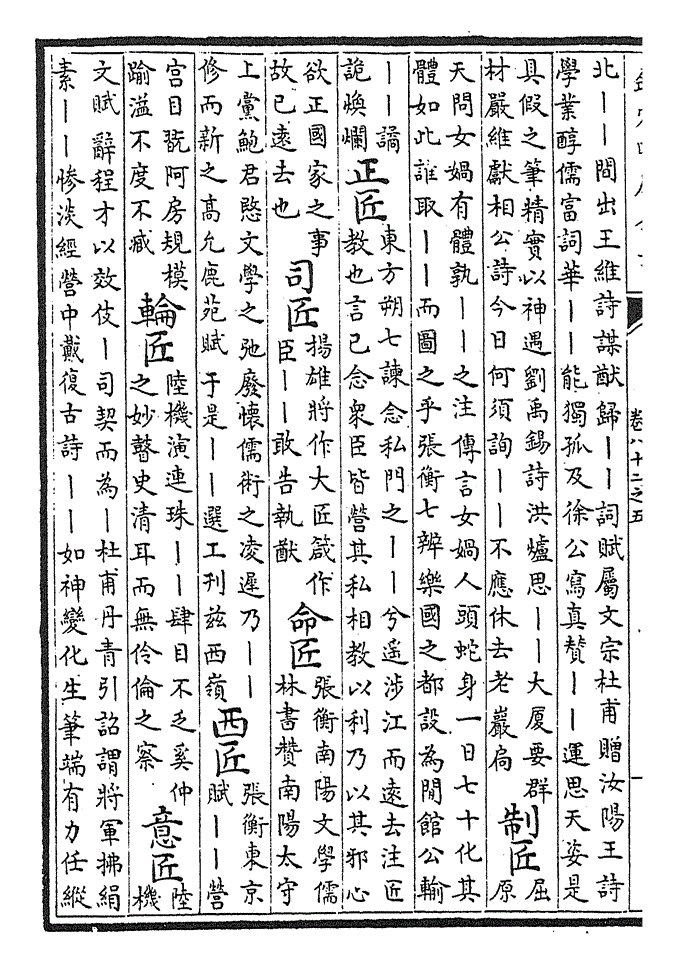 卷八十二之五
北——間出王維詩謀猷歸——詞賦屬文宗杜甫贈汝陽王詩
學業醇儒富詞華——能獨孤及徐公寫真贊——運思天姿是
具假之筆精實以神遇劉禹錫詩洪爐思——大厦要群
材嚴維獻相公詩今日何須詢——不應休去老巖扃
制匠
屈
原
天問女媧有體孰——之注傳言女媧人頭蛇身一日七十化其
體如此誰取——而圖之乎張衡七辨樂國之都設為閒館公輸
——譎
詭煥爛
正匠
東方朔七諫念私門之——兮遥涉江而遠去注匠
教也言己念衆臣皆營其私相教以利乃以其邪心
欲正國家之事
故已遠去也
司匠
揚雄將作大匠箴作
臣——敢告執猷
命匠
張衡南陽文學儒
林書贊南陽太守
上黨鮑君愍文學之弛廢懷儒術之凌遲乃——
修而新之髙允鹿苑賦于是——選工刊兹西嶺
西匠
張衡東京
賦——營
宫目翫阿房規模
踰溢不度不臧
輪匠
陸機演連珠——肆目不乏奚仲
之妙瞽史清耳而無伶倫之察
意匠
陸
機
文賦辭程才以效伎—司契而為—杜甫丹青引詔謂將軍拂絹
素——慘淡經營中戴復古詩——如神變化生筆端有力任縱